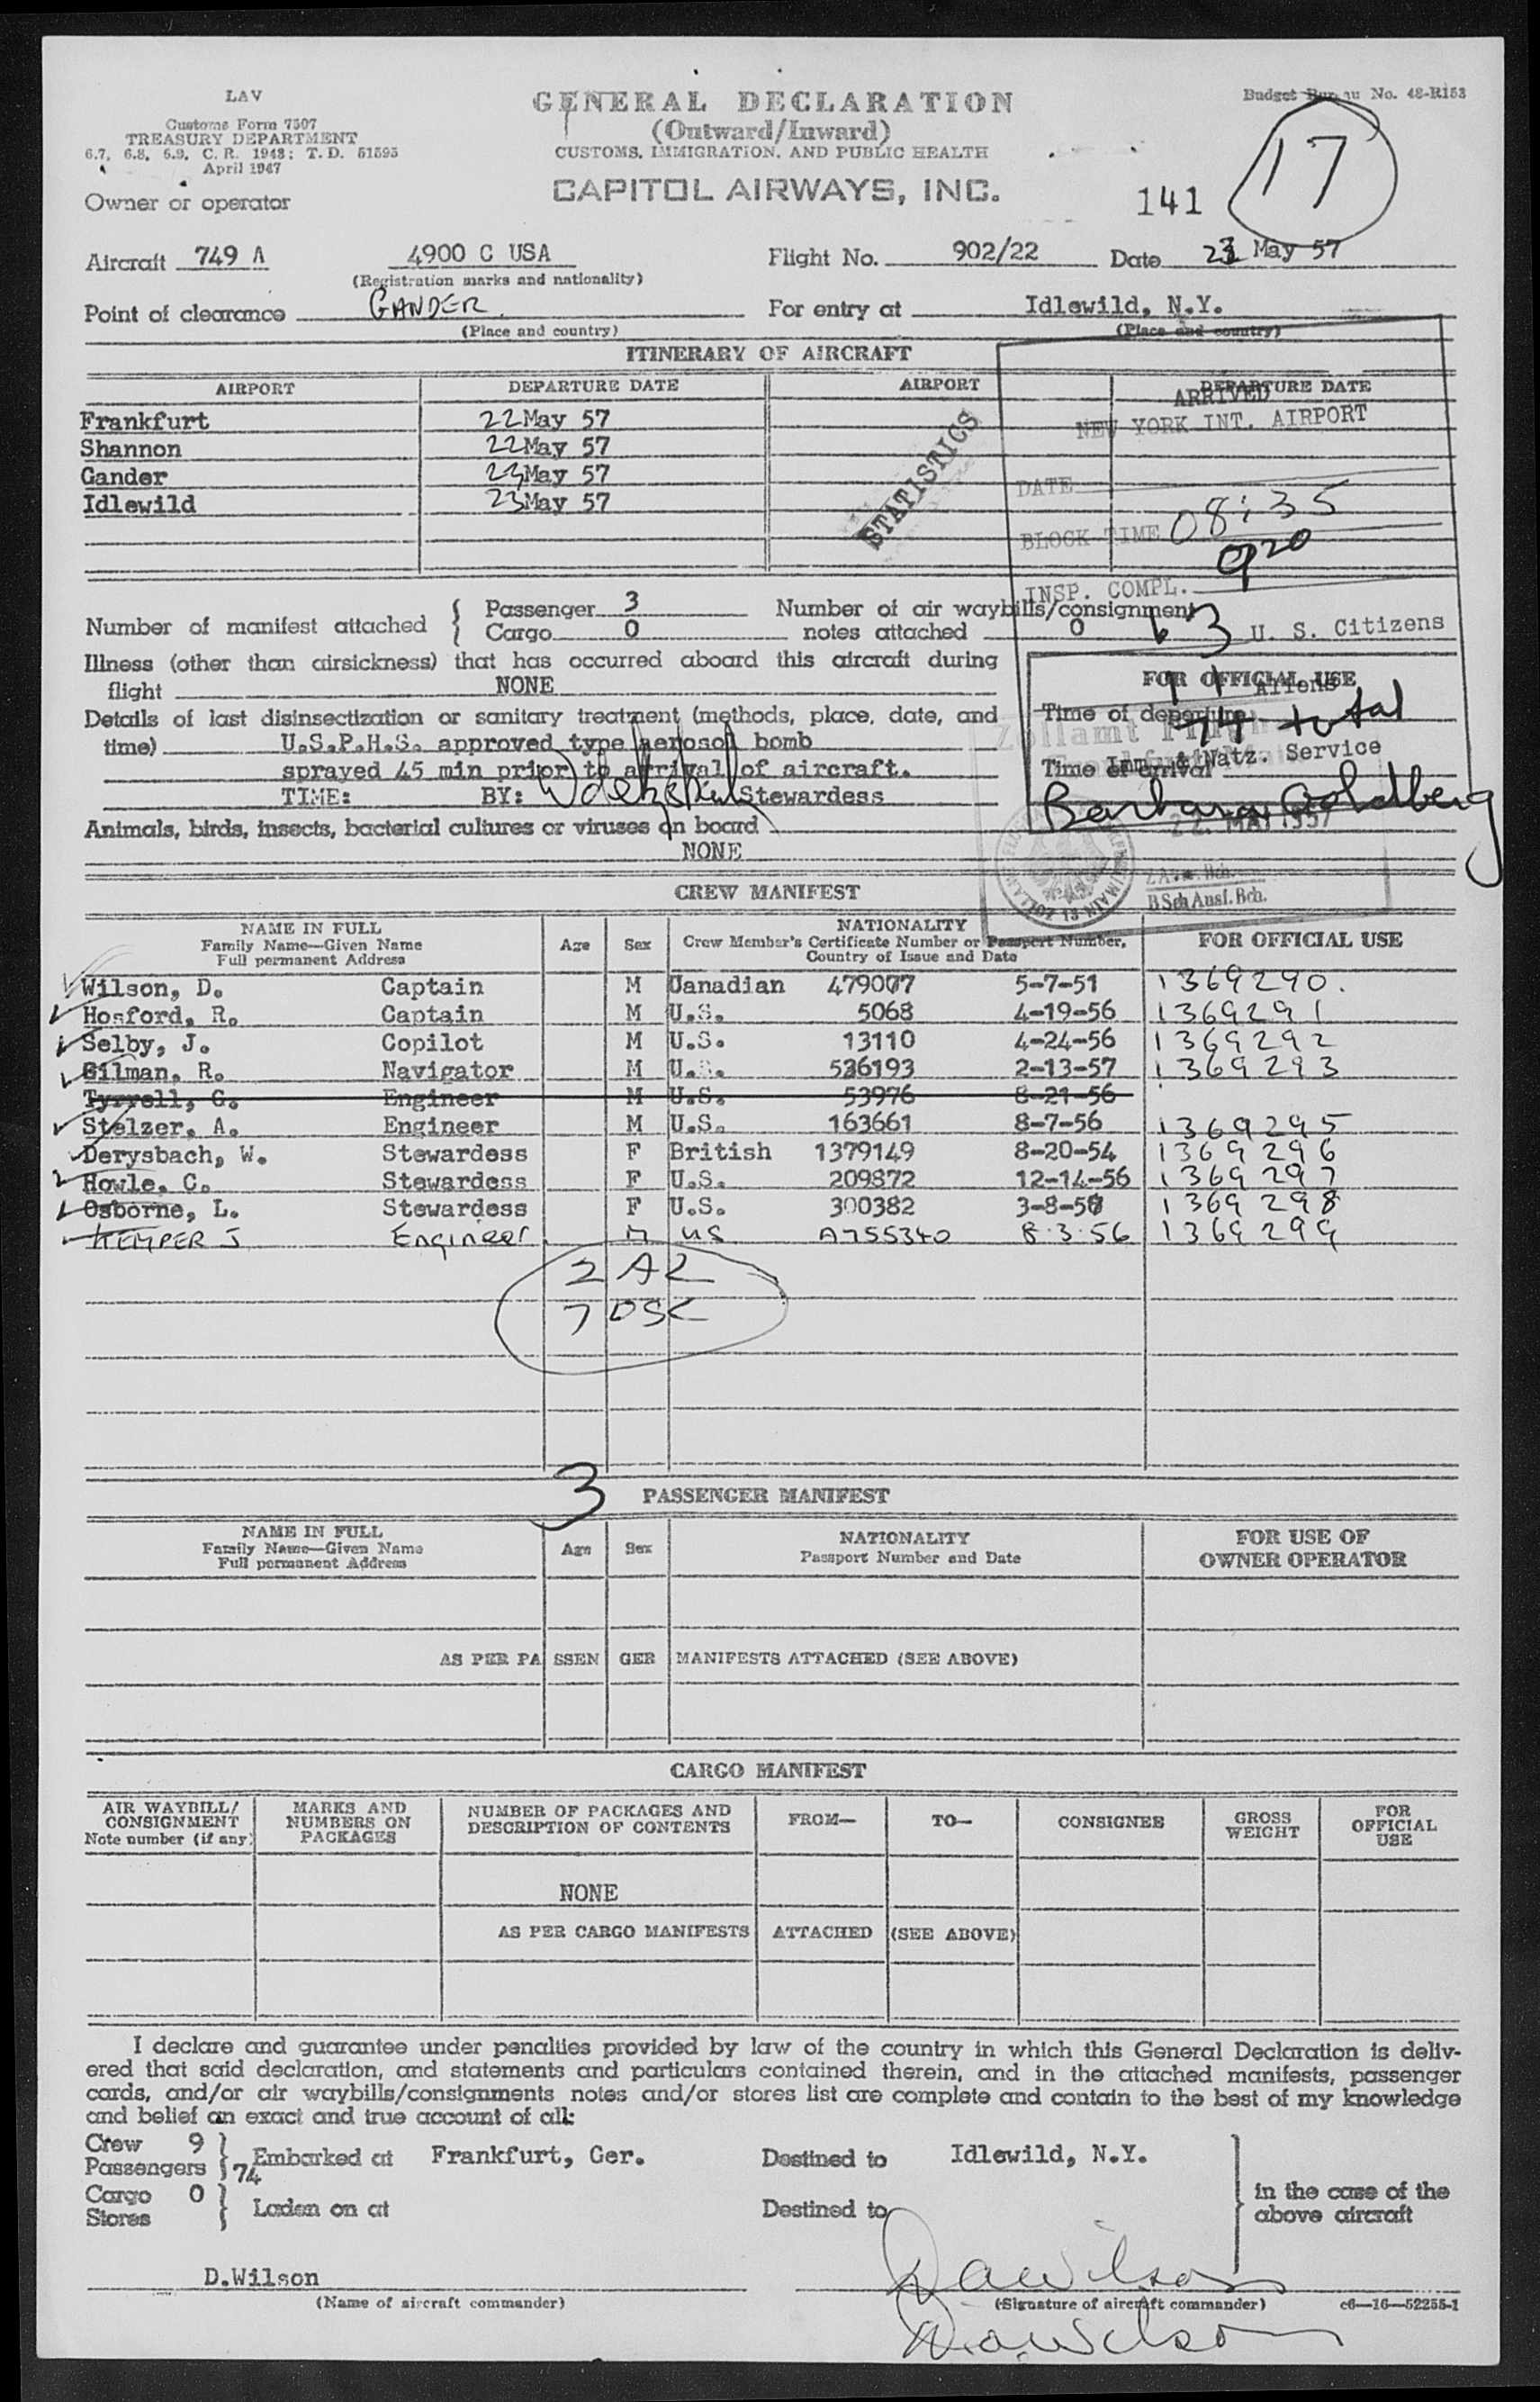 LAV
Customs Form 7507
TREASURY DEPARTMENT
6.7, 6.8, 6.9, C. R. 1943; T. D. 51595
April 1947
GENERAL DECLARATION
(Outward/Inward)
CUSTOMS, IMMIGRATION, AND PUBLIC HEALTH
Budget Bureau No. 48-R153
Owner or operator
CAPITOL AIRWAYS, INC.
141
17
Aircraft 749 A 4900 C USA Flight No. 902/22 Date 23 May 57
(Registration marks and nationality)
Point of clearance GANDER For entry at Idlewild, N.Y.
(Place and country) (Place and country)
ITINERARY OF AIRCRAFT
AIRPORT DEPARTURE DATE AIRPORT DEPARTURE DATE
ARRIVED
Frankfurt 22 May 57
NEW YORK INT. AIRPORT
Shannon 22 May 57
Gander 23 May 57
Idlewild 23 May 57
STATISTICS
DATE
BLOCK TIME 08:35
0920
INSP. COMPL.
Number of manifest attached { Passenger 3 Cargo 0
Number of air waybills/consignment notes attached 0
63 U. S. Citizens
Illness (other than airsickness) that has occurred aboard this aircraft during
flight NONE
FOR OFFICIAL USE
11 Aliens
Details of last disinsectization or sanitary treatment (methods, place, date, and
time) U.S.P.H.S. approved type aerosol bomb
sprayed 45 min prior to arrival of aircraft.
TIME: BY: Stewardess
Time of departure
74 total
Zollamt
Time of arrival
Imm. & Natz. Service
Barbara Goldberg
22. MAI 1957
Animals, birds, insects, bacterial cultures or viruses on board
NONE
B Sch Ausf. Bch.
CREW MANIFEST
NAME IN FULL
Family Name—Given Name
Full permanent Address
Age Sex
NATIONALITY
Crew Member's Certificate Number or Passport Number,
Country of Issue and Date
FOR OFFICIAL USE
Wilson, D. Captain M Canadian 479077 5-7-51 1369290.
Hosford, R. Captain M U.S. 5068 4-19-56 1369291
Selby, J. Copilot M U.S. 13110 4-24-56 1369292
Gilman, R. Navigator M U.S. 526193 2-13-57 1369293
Tyrrell, G. Engineer M U.S. 53976 8-21-56
Stelzer, A. Engineer M U.S. 163661 8-7-56 1369295
Derysbach, W. Stewardess F British 1379149 8-20-54 1369296
Howle, C. Stewardess F U.S. 209872 12-14-56 1369297
Osborne, L. Stewardess F U.S. 300382 3-8-56 1369298
KEMPER J Engineer M US A755340 8.3.56 1369299
2 AL
7 DSC
3
PASSENGER MANIFEST
NAME IN FULL
Family Name—Given Name
Full permanent Address
Age Sex
NATIONALITY
Passport Number and Date
FOR USE OF
OWNER OPERATOR
AS PER PASSENGER MANIFESTS ATTACHED (SEE ABOVE)
CARGO MANIFEST
AIR WAYBILL/
CONSIGNMENT
Note number (if any)
MARKS AND
NUMBERS ON
PACKAGES
NUMBER OF PACKAGES AND
DESCRIPTION OF CONTENTS
FROM— TO— CONSIGNEE
GROSS
WEIGHT
FOR
OFFICIAL
USE
NONE
AS PER CARGO MANIFESTS ATTACHED (SEE ABOVE)
I declare and guarantee under penalties provided by law of the country in which this General Declaration is deliv-
ered that said declaration, and statements and particulars contained therein, and in the attached manifests, passenger
cards, and/or air waybills/consignments notes and/or stores list are complete and contain to the best of my knowledge
and belief an exact and true account of all:
Crew 9
Passengers 74 } Embarked at Frankfurt, Ger. Destined to Idlewild, N.Y.
Cargo 0
Stores } Laden on at Destined to
in the case of the
above aircraft
D.Wilson
D A Wilson
(Name of aircraft commander) (Signature of aircraft commander) c6—16—52255-1
D.A. Wilson